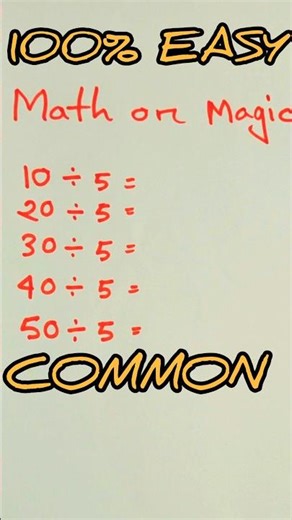 100% EASY
Math or Magic
10 ÷ 5 =
20 ÷ 5 =
30 ÷ 5 =
40 ÷ 5 =
50 ÷ 5 =
COMMON